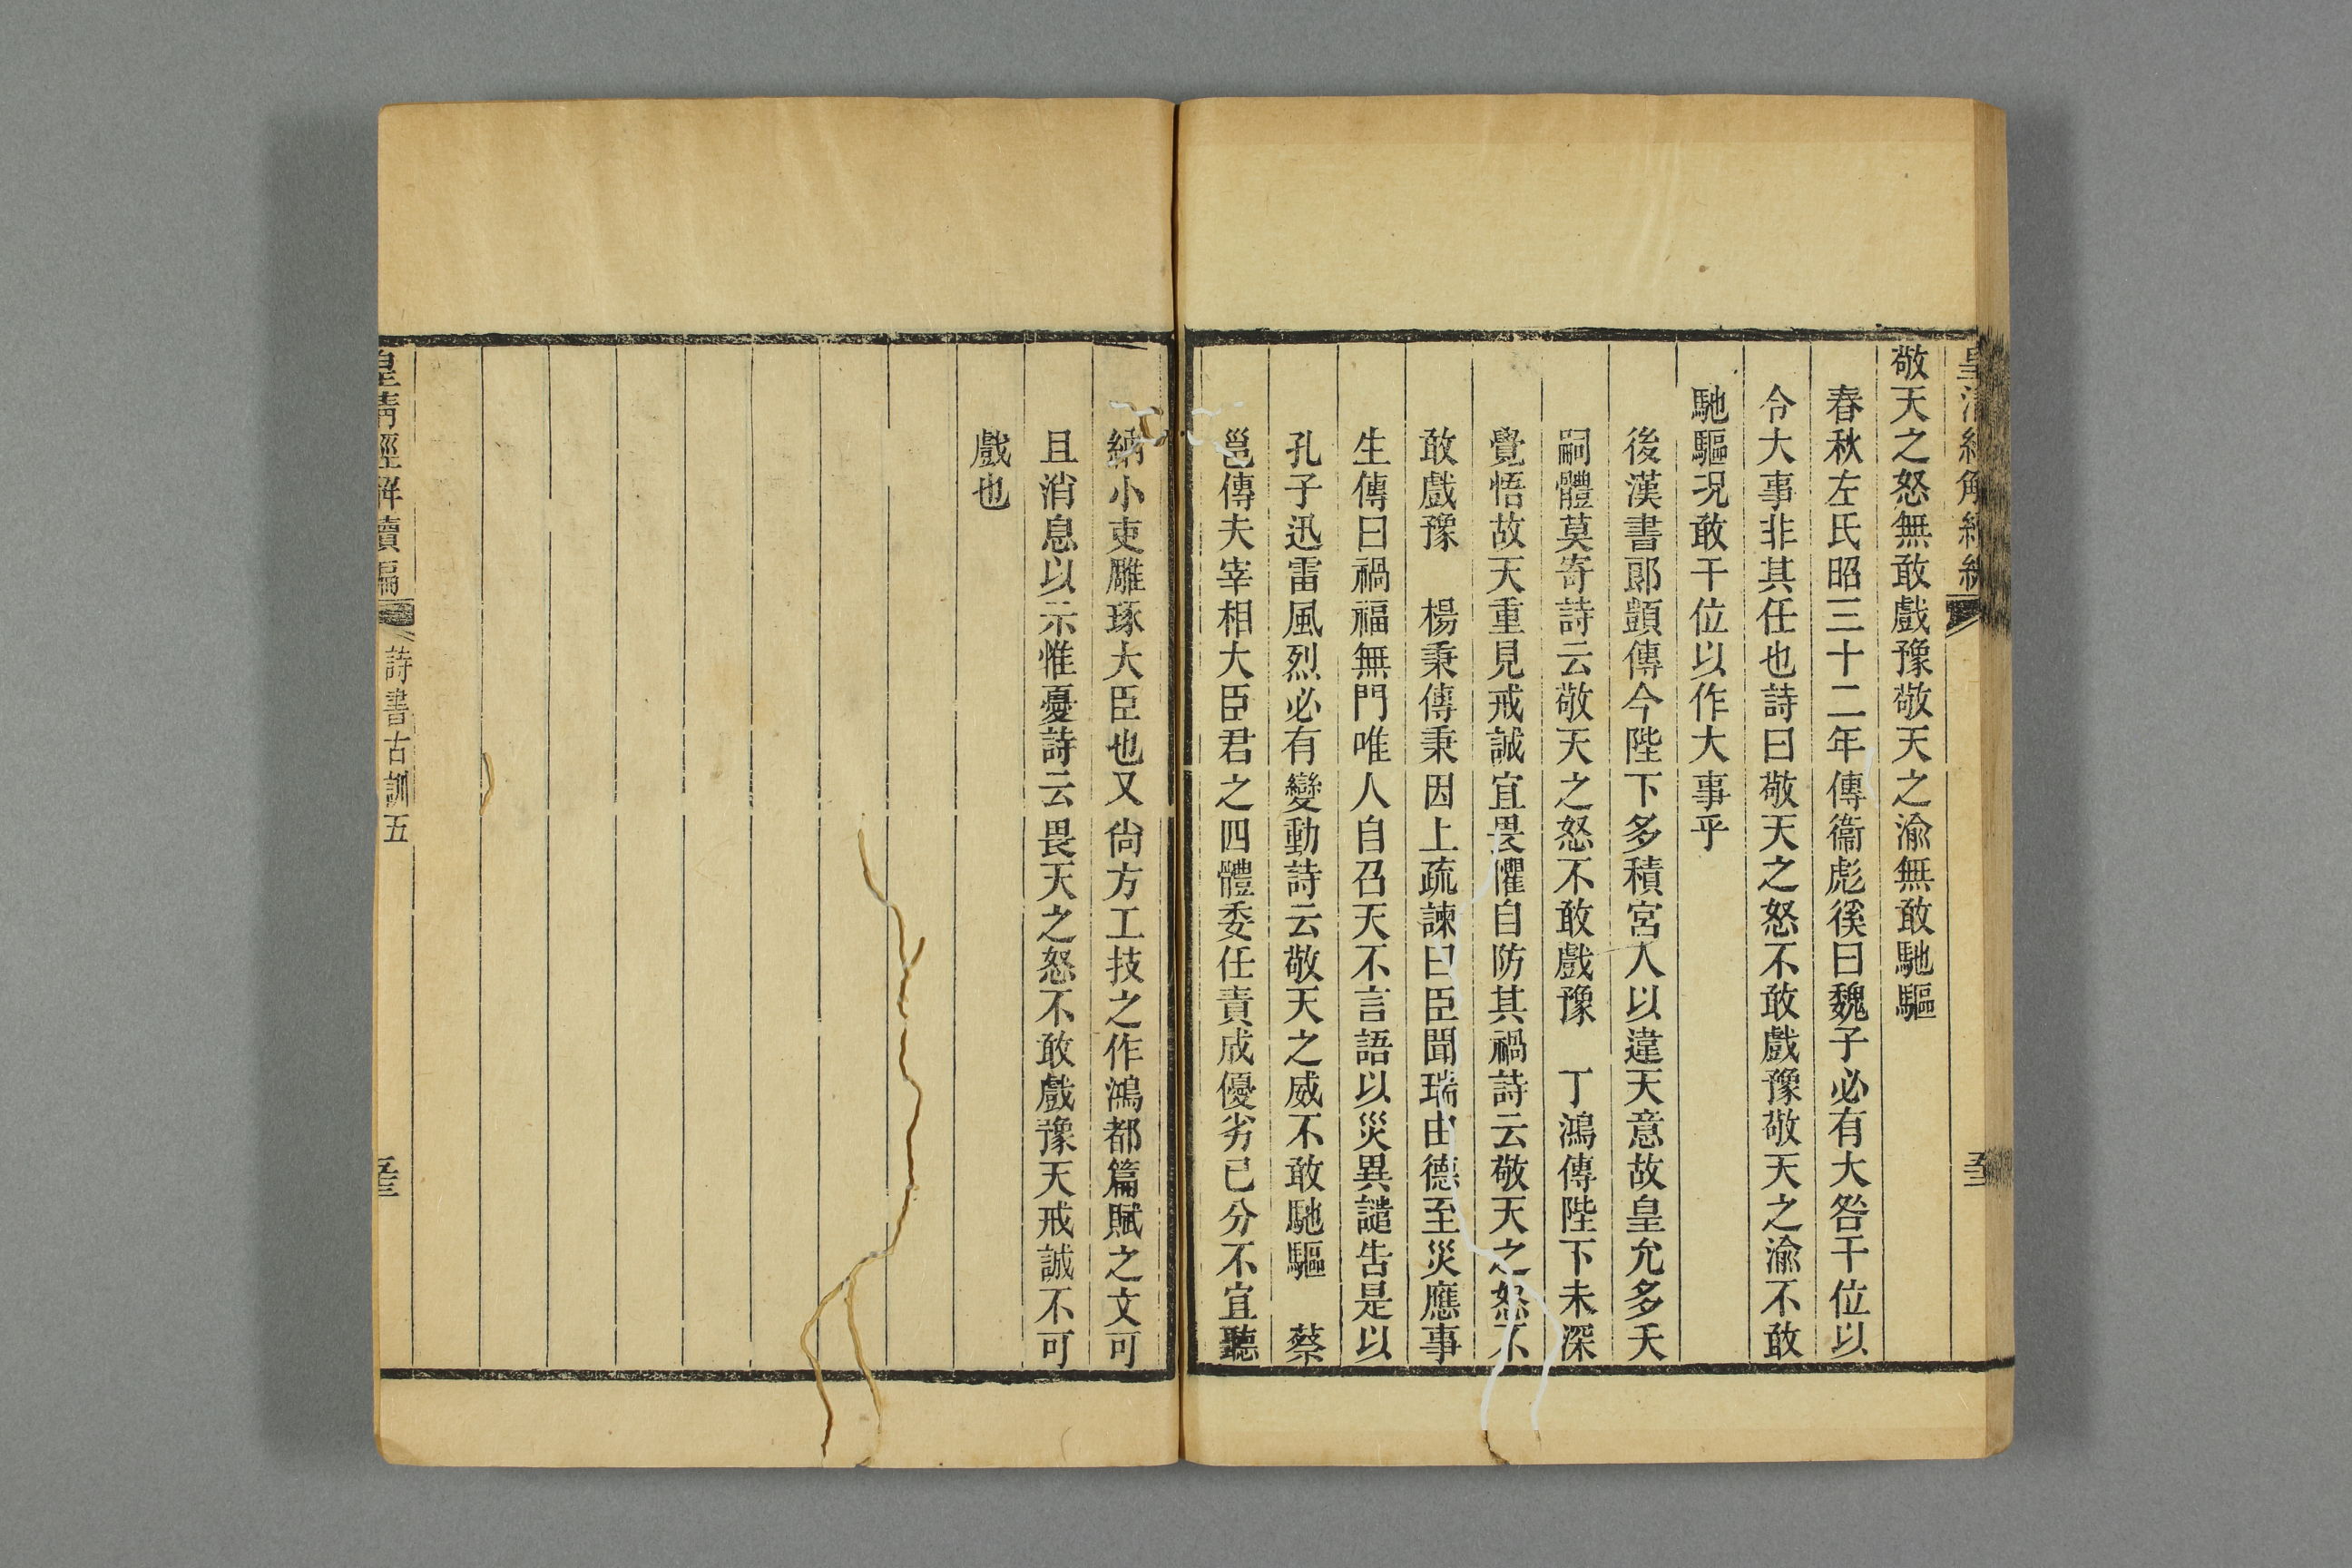 敬天之怒無敢戲豫敬天之渝無敢馳驅
春秋左氏昭三十二年傳衞彪徯曰魏子必有大咎干位以
令大事非其任也詩曰敬天之怒不敢戲豫敬天之渝不敢
馳驅况敢干位以作大事乎
後漢書郎顗傳今陛下多積宮人以違天意故皇允多夭
嗣體莫寄詩云敬天之怒不敢戲豫　丁鴻傳陛下未深
覺悟故天重見戒誠宜畏懼自防其禍詩云敬天之怒不
敢戲豫　楊秉傳秉因上疏諫曰臣聞瑞由德至災應事
生傳曰禍福無門唯人自召天不言語以災異譴告是以
孔子迅雷風烈必有變動詩云敬天之威不敢馳驅　蔡
邕傳夫宰相大臣君之四體委任責成優劣已分不宜聽
納小吏雕琢大臣也又尙方工技之作鴻都篇賦之文可
且消息以示惟憂詩云畏天之怒不敢戲豫天戒誠不可
戲也
皇淸經解續編　詩書古訓五